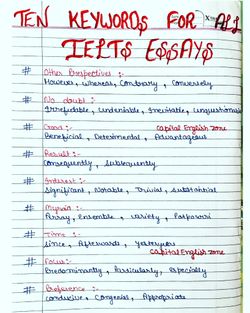 TEN KEYWORDS FOR ALL
IELTS ESSAYS
# Other Perspectives :-
However, whereas, Contrary, Conversely
# No doubt :-
Irrefutable, undeniable, Inevitable, unquestionable
# Good :- Capital English zone
Beneficial, Detrimental, Advantageous
# Result :-
Consequently, Subsequently
# Interest :-
Significant, Notable, Trivial, substantial
# Myriad :-
Array, Ensemble, Variety, Potpourri
# Time :-
Since, Afterwards, Yesteryears
Capital English zone
# Focus :-
Predominantly, Particularly, Especially
# Preference :-
conducive, Congenial, Appropriate